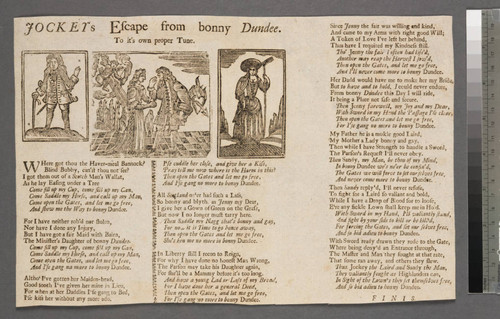 JOCKEYs Escape from bonny Dundee.
To it's own proper Tune.
WHere got thou the Haver-meal Bannock?
Blind Booby, can'st thou not see?
I got them out of a Scotch Man's Wallet,
As he lay Easing under a Tree:
Come fill up my Cup, come fill up my Can,
Come Saddle my Horse, and call up my Man,
Come open the Gates, and let me go free,
And shew me the Way to bonny Dundee.
For I have neither
Nor have I done any Injury,
But I have got a fair Maid with Bairn,
The Minister's Daughter of bonny Dundee.
Come fill up my Cup, come fill up my Can,
Come Saddle my Horse, and call up my Man,
Come open the Gates, and let me go free,
And I'se gang no more to bonny Dundee.
Altho' I've gotten her Maiden-head,
Good sooth I've given her mine in Lieu,
For when at her Daddies I'se gang to Bed,
I'se kist her without any more ado.
I'se cuddle her close, and give her a Kiss,
Pray tell me now where is the Harm in this?
Then open the Gates and let me go free,
And I'se gang no more to bonny Dundee.
All Scotland ne'er had such a Lass,
So bonny and blyth, as Jenny my Dear,
I give her a Gown of Green on the Grass,
But now I no longer must tarry here.
Then Saddle my Nag that's bonny and gay,
For it is Time to go hence away,
Then open the Gates, and let me go free,
She's ken me no more in bonny Dundee.
In Liberty still I mean to Reign,
For why I have done no honest Man Wrong,
The Parson may take his Daughter again,
For she'll be a Mammy before it's too long.
And have a young Lad or Lass of my Breed,
For I have done her a general Deed,
Then open the Gates, and let me go free,
For I'se gang no more to bonny Dundee.
Since Jenny the fair was willing and kind,
And came to my Arms with right good Will;
A Token of Love I've left her behind,
Thus have I requited my Kindness still.
Tho' Jenny the fair I often had kiss'd,
Another may reap the Harvest I sow'd,
Then open the Gates, and let me go free,
And I'll never come more to bonny Dundee.
Her Dad would have me to make her my Bride,
But to have and to hold, I could never endure,
From bonny Dundee this Day I will ride,
It being a Place not safe and secure.
Then Jenny farewel, my Joy and my Dear,
With Sword in my Hand the Passage I'll clear,
Then open the Gates and let me go free,
For I'se gang no more to bonny Dundee.
My Father he is a muckle good Laird,
My Mother a Lady bonny and gay,
Then while I have Strength to handle a Sword,
The Parson's Request I'll never obey.
Then Sandy, my Man, be thou of my Mind,
In bonny Dundee we's ne'er be confin'd,
The Gates we will force to set our selves free,
And never come more to bonny Dundee.
Then Sandy reply'd, I'll never refuse,
To fight for a Laird so valiant and bold,
While I have a Drop of Blood for to lose,
E're any fickle Lown shall keep us in Hold.
With Sword in my Hand, I'll valiantly stand,
And fight by your side to kill or be kill'd,
For forcing the Gates, and set our selves free,
And so bid adieu to bonny Dundee.
With Sword ready drawn they rode to the Gate,
Where being deny'd an Entrance through,
The Master and Man they fought at that rate,
That some ran away, and others they slew.
Thus Jockey the Laird and Sandy the Man,
They valiantly fought as Highlanders can,
In spight of the Lowns they set themselves free,
And so bid adieu to bonny Dundee.
FINIS